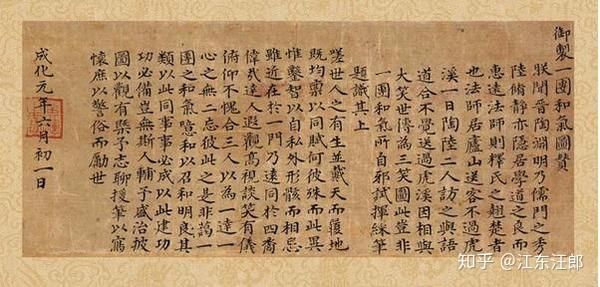 御製一團和氣圖贊
朕聞晉陶淵明乃儒門之秀
陸脩靜亦隱居學道之良而
惠遠法師則釋氏之翹楚者
也法師居廬山送客不過虎
溪一日陶陸二人訪之與語
道合不覺送過虎溪因相與
大笑世傳為三笑圖此豈非
一團和氣所自邪試揮綵筆
題識其上
嗟世人之有生並戴天而履地
既均稟以同賦何彼殊而此異
惟鑿智以自私外形骸而相忌
雖近在於一門乃遠同於四裔
偉哉達人遐觀高視談笑有儀
俯仰不愧合三人以為一達一
心之無二忘彼此之是非藹一
團之和氣噫和以召和明良其
類以此同事事必成以此建功
功必備豈無斯人輔予盛治披
圖以觀有槩予志聊援筆以寫
懷庶以警俗而勵世
成化元年六月初一日
知乎 @江东汪郎